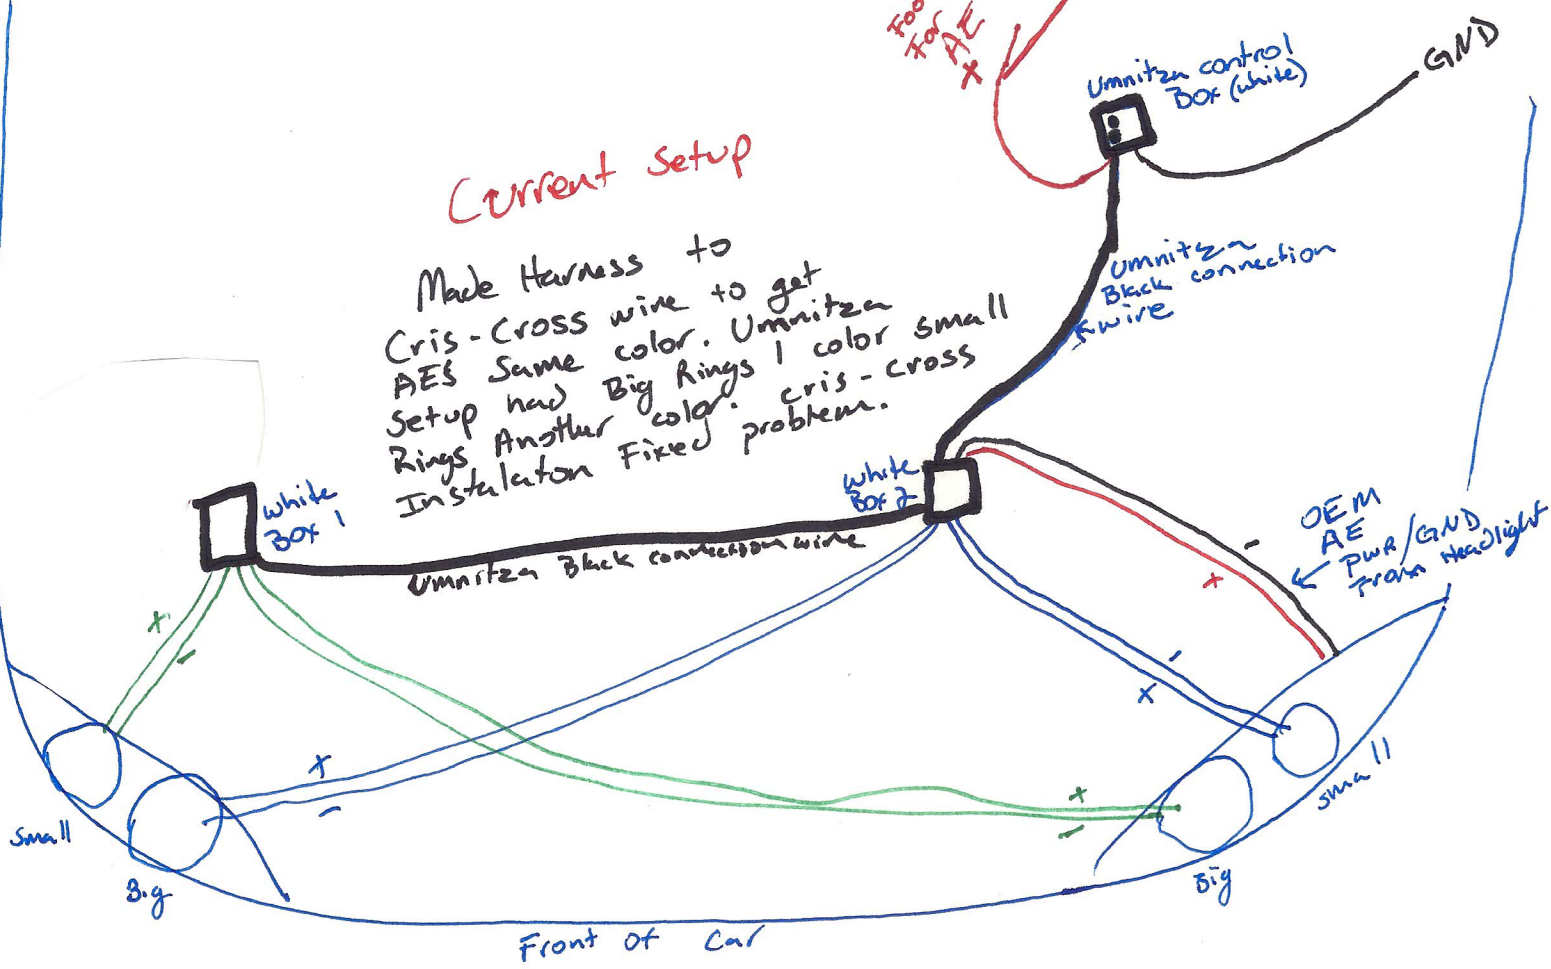 Foo
For
AE
+
Umnitza control
Box (white)
GND
Current Setup
Made Harness to
Cris-Cross wire to get
AES Same color. Umnitza
Setup had Big Rings 1 color small
Rings Another color. cris-cross
Instalaton Fixed problem.
Umnitza
Black connection
wire
white
Box 1
white
Box 2
Umnitza Black connection wire
OEM
AE
PWR/GND
From Headlight
-
+
+
-
-
+
+
-
+
-
small
Big
small
Big
Front Of Car